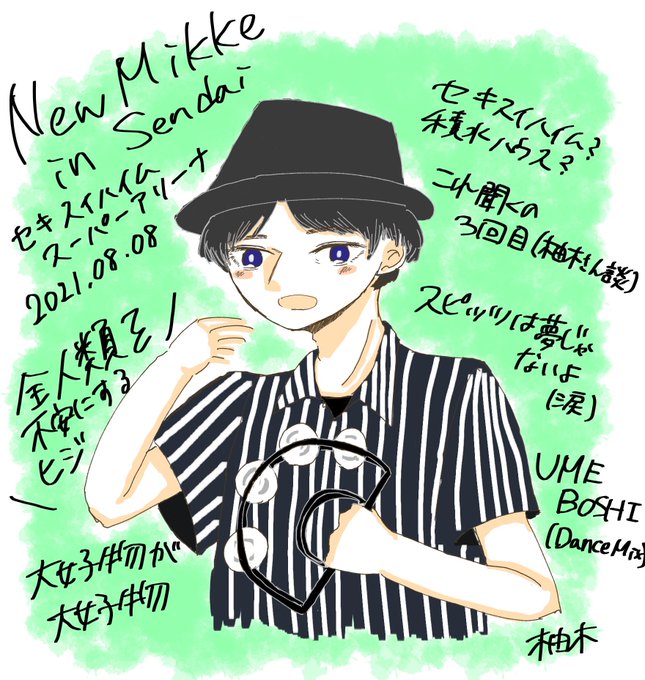 New Mikke
in Sendai
セキスイハイム
スーパーアリーナ
2021.08.08
全人類を
不安にする
ヒジ
大好物が
大好物
セキスイハイム?
積水ハウス?
これ聞くの
3回目(柚木さん談)
スピッツは夢じゃ
ないよ
(涙)
UME
BOSHI
(Dance Mix)
柚木